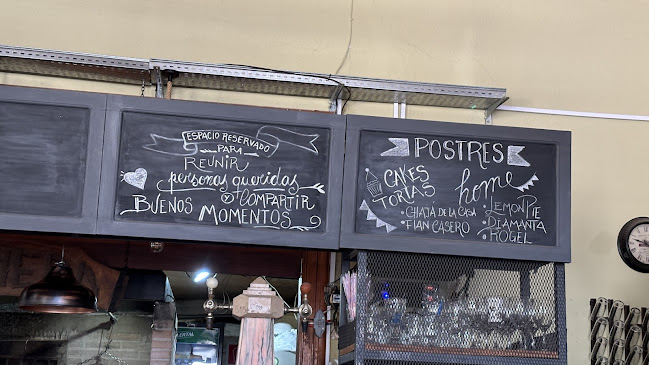 ESPACIO RESERVADO
PARA
REUNIR
personas queridas
COMPARTIR
BUENOS MOMENTOS
POSTRES
CAKES
TORTAS
home
• CHAJA DE LA CASA
• FLAN CASERO
• LEMON PIE
• DIAMANTA
• ROGEL